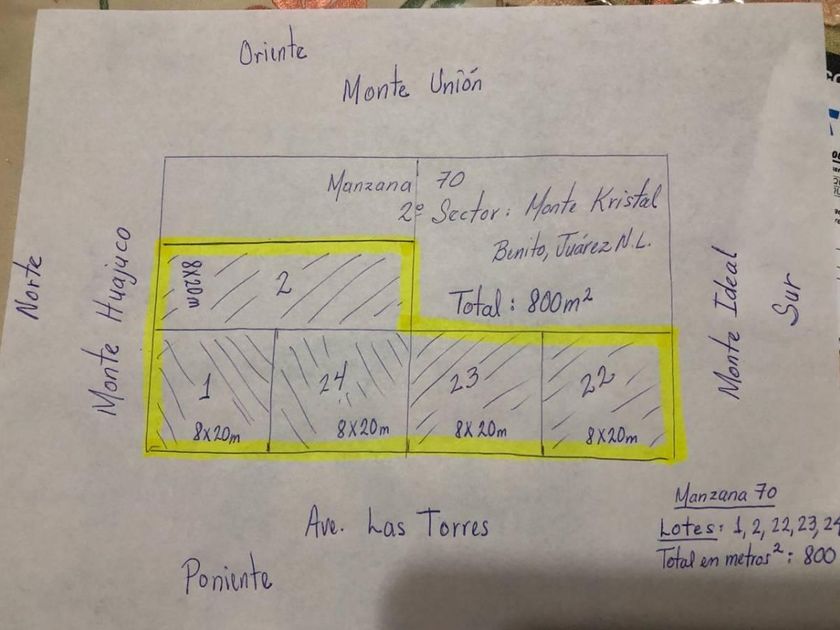 Oriente
Monte Unión
Manzana 70
2º Sector: Monte Kristal
Benito, Juárez N.L.
Total: 800m²
Norte
Monte Huajuco
8x20m
2
1
8x20m
24
8x20m
23
8x20m
22
8x20m
Monte Ideal
Sur
Ave. Las Torres
Poniente
Manzana 70
Lotes: 1, 2, 22, 23, 24
Total en metros²: 800